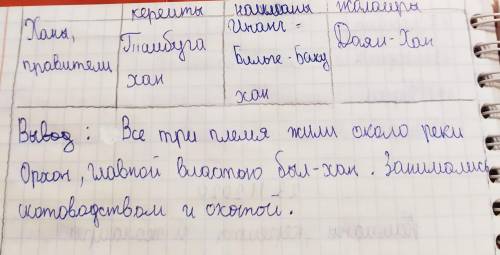 кереиты найманы жалаиры
Ханы, Тиибуга Инанг- Даян-Хан
правители хан Бильге-Баку
хан
Вывод: Все три племя жили около реки
Орхон, главной властою был-хан. Занимались
скотоводством и охотой.